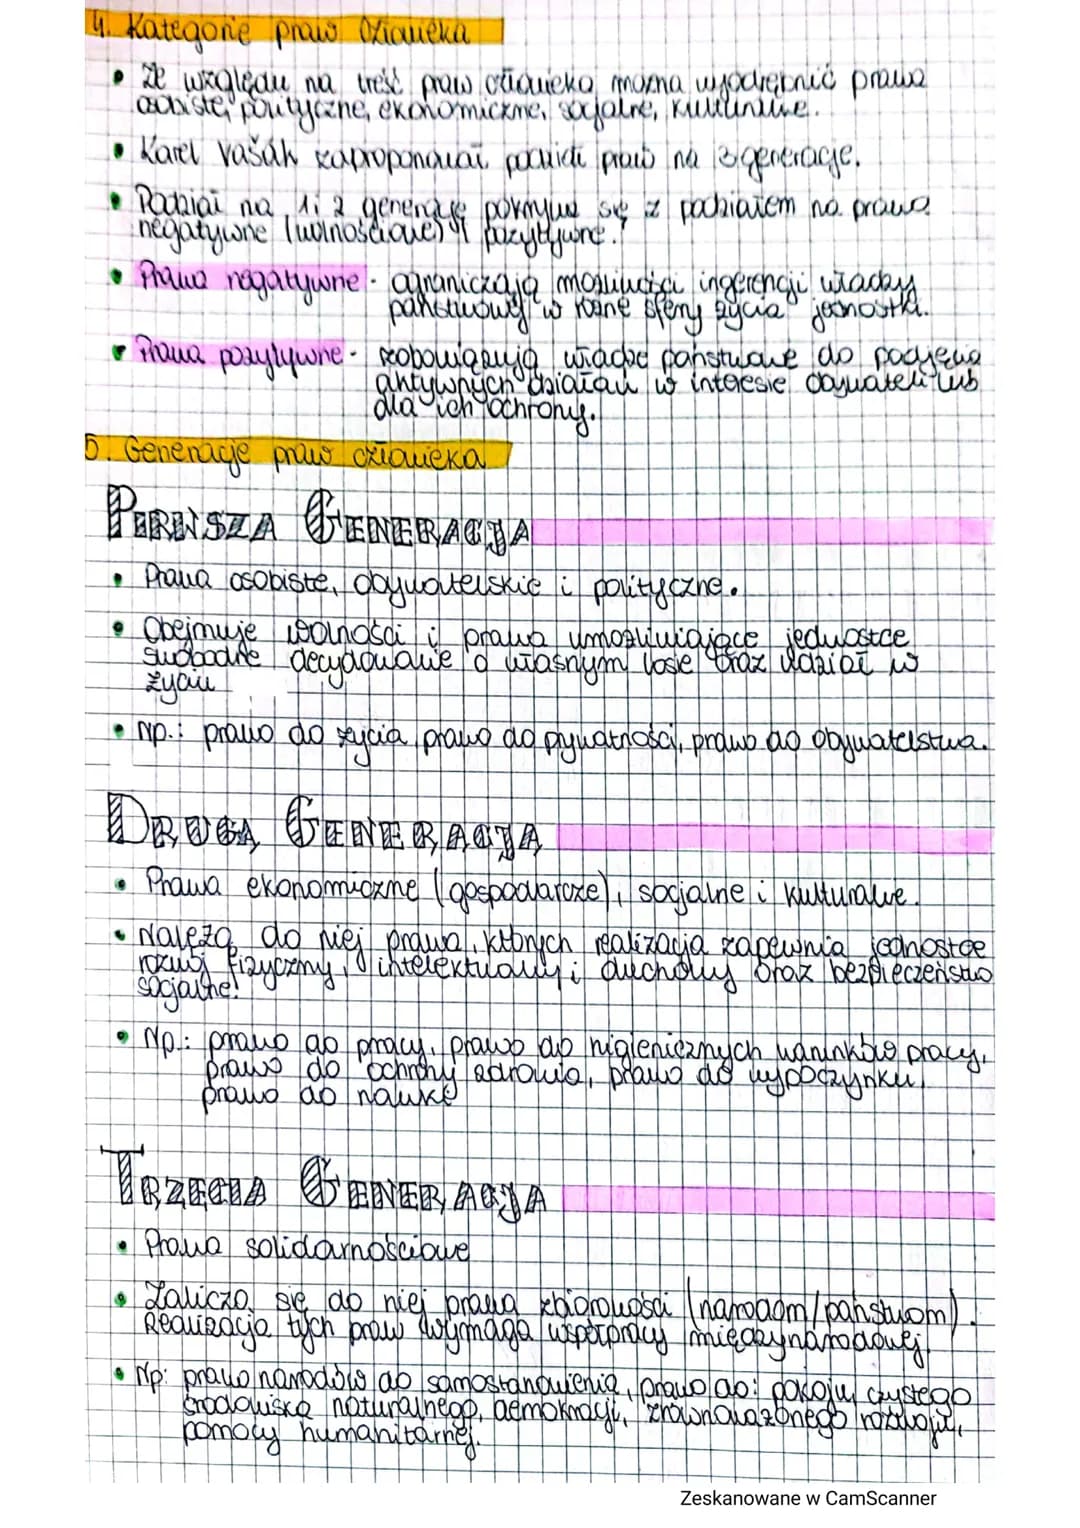 4. Kategorie praw człowieka
• Ze względu na treść praw człowieka można wyodrębnić prawa
osobiste, polityczne, ekonomiczne, socjalne, kulturalne.
• Karel Vašák zaproponował podział praw na 3 generacje.
• Podział na 1 i 2 generację pokrywa się z podziałem na prawa
negatywne (wolnościowe) i pozytywne.
• Prawa negatywne - ograniczają możliwości ingerencji władzy
państwowej w różne sfery życia jednostki.
• Prawa pozytywne - zobowiązują władze państwowe do podjęcia
aktywnych działań w interesie obywateli lub
dla ich ochrony.
5. Generacje praw człowieka
PIERWSZA GENERACJA
• Prawa osobiste, obywatelskie i polityczne.
• Obejmuje wolności i prawa umożliwiające jednostce
swobodne decydowanie o własnym losie oraz udział w
życiu
• Np.: prawo do życia, prawo do prywatności, prawo do obywatelstwa.
DRUGA GENERACJA
• Prawa ekonomiczne (gospodarcze), socjalne i kulturalne.
• Należą do niej prawa, których realizacja zapewnia jednostce
rozwój fizyczny, intelektualny i duchowy oraz bezpieczeństwo
socjalne.
• Np.: prawo do pracy, prawo do higienicznych warunków pracy,
prawo do ochrony zdrowia, prawo do wypoczynku,
prawo do nauki
TRZECIA GENERACJA
• Prawa solidarnościowe
• Zalicza się do niej prawa zbiorowości (narodom/państwom).
Realizacja tych praw wymaga współpracy międzynarodowej.
• Np: prawo narodów do samostanowienia, prawo do: pokoju, czystego
środowiska naturalnego, demokracji, zrównoważonego rozwoju,
pomocy humanitarnej.
Zeskanowane w CamScanner